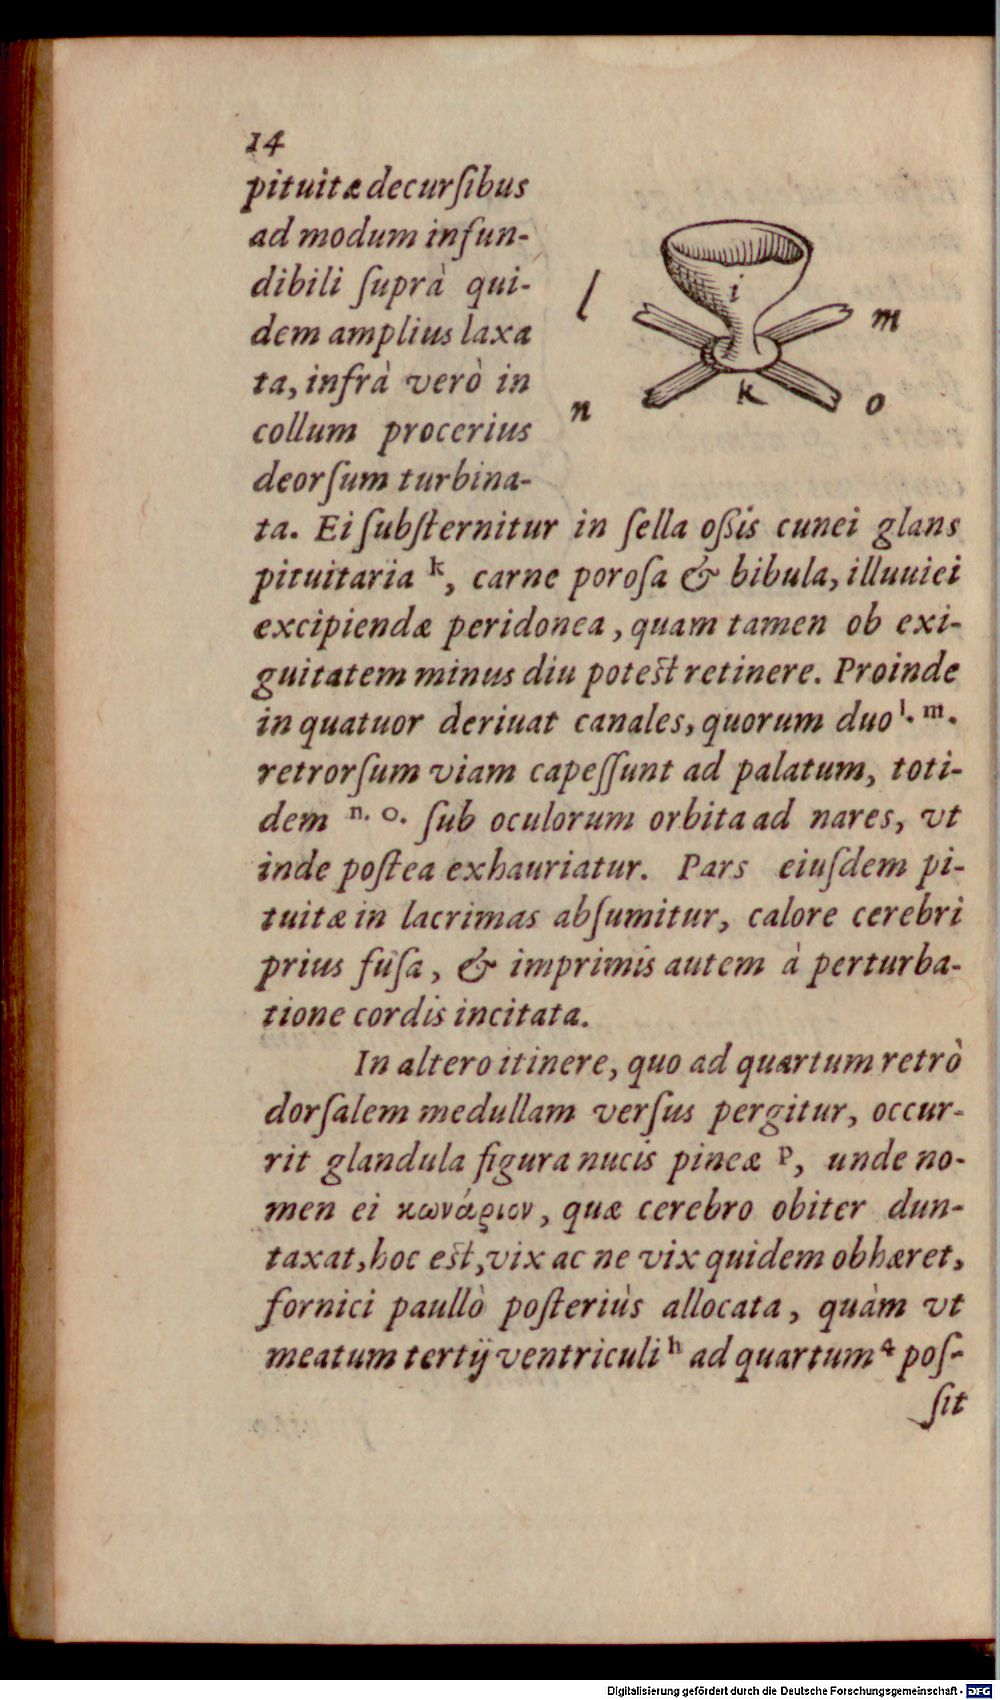 14
pituitæ decurſibus
ad modum infun-
dibili ſuprà qui-
dem amplius laxa
ta, infrà verò in
collum procerius
deorſum turbina-
i
l
m
n
k
o
ta. Ei ſubſternitur in ſella oſsis cunei glans
pituitaria k, carne poroſa & bibula, illuuiei
excipiendæ peridonea, quam tamen ob exi-
guitatem minus diu poteſt retinere. Proinde
in quatuor deriuat canales, quorum duo l. m.
retrorſum viam capeſſunt ad palatum, toti-
dem n. o. ſub oculorum orbita ad nares, vt
inde poſtea exhauriatur. Pars eiuſdem pi-
tuitæ in lacrimas abſumitur, calore cerebri
prius fuſa, & imprimis autem à perturba-
tione cordis incitata.
In altero itinere, quo ad quartum retrò
dorſalem medullam verſus pergitur, occur-
rit glandula figura nucis pineæ p, unde no-
men ei κωνάριον, quæ cerebro obiter dun-
taxat, hoc eſt, vix ac ne vix quidem obhæret,
fornici paullò poſteriùs allocata, quàm vt
meatum tertij ventriculi h ad quartum q poſ-
ſit
Digitalisierung gefördert durch die Deutsche Forschungsgemeinschaft - DFG